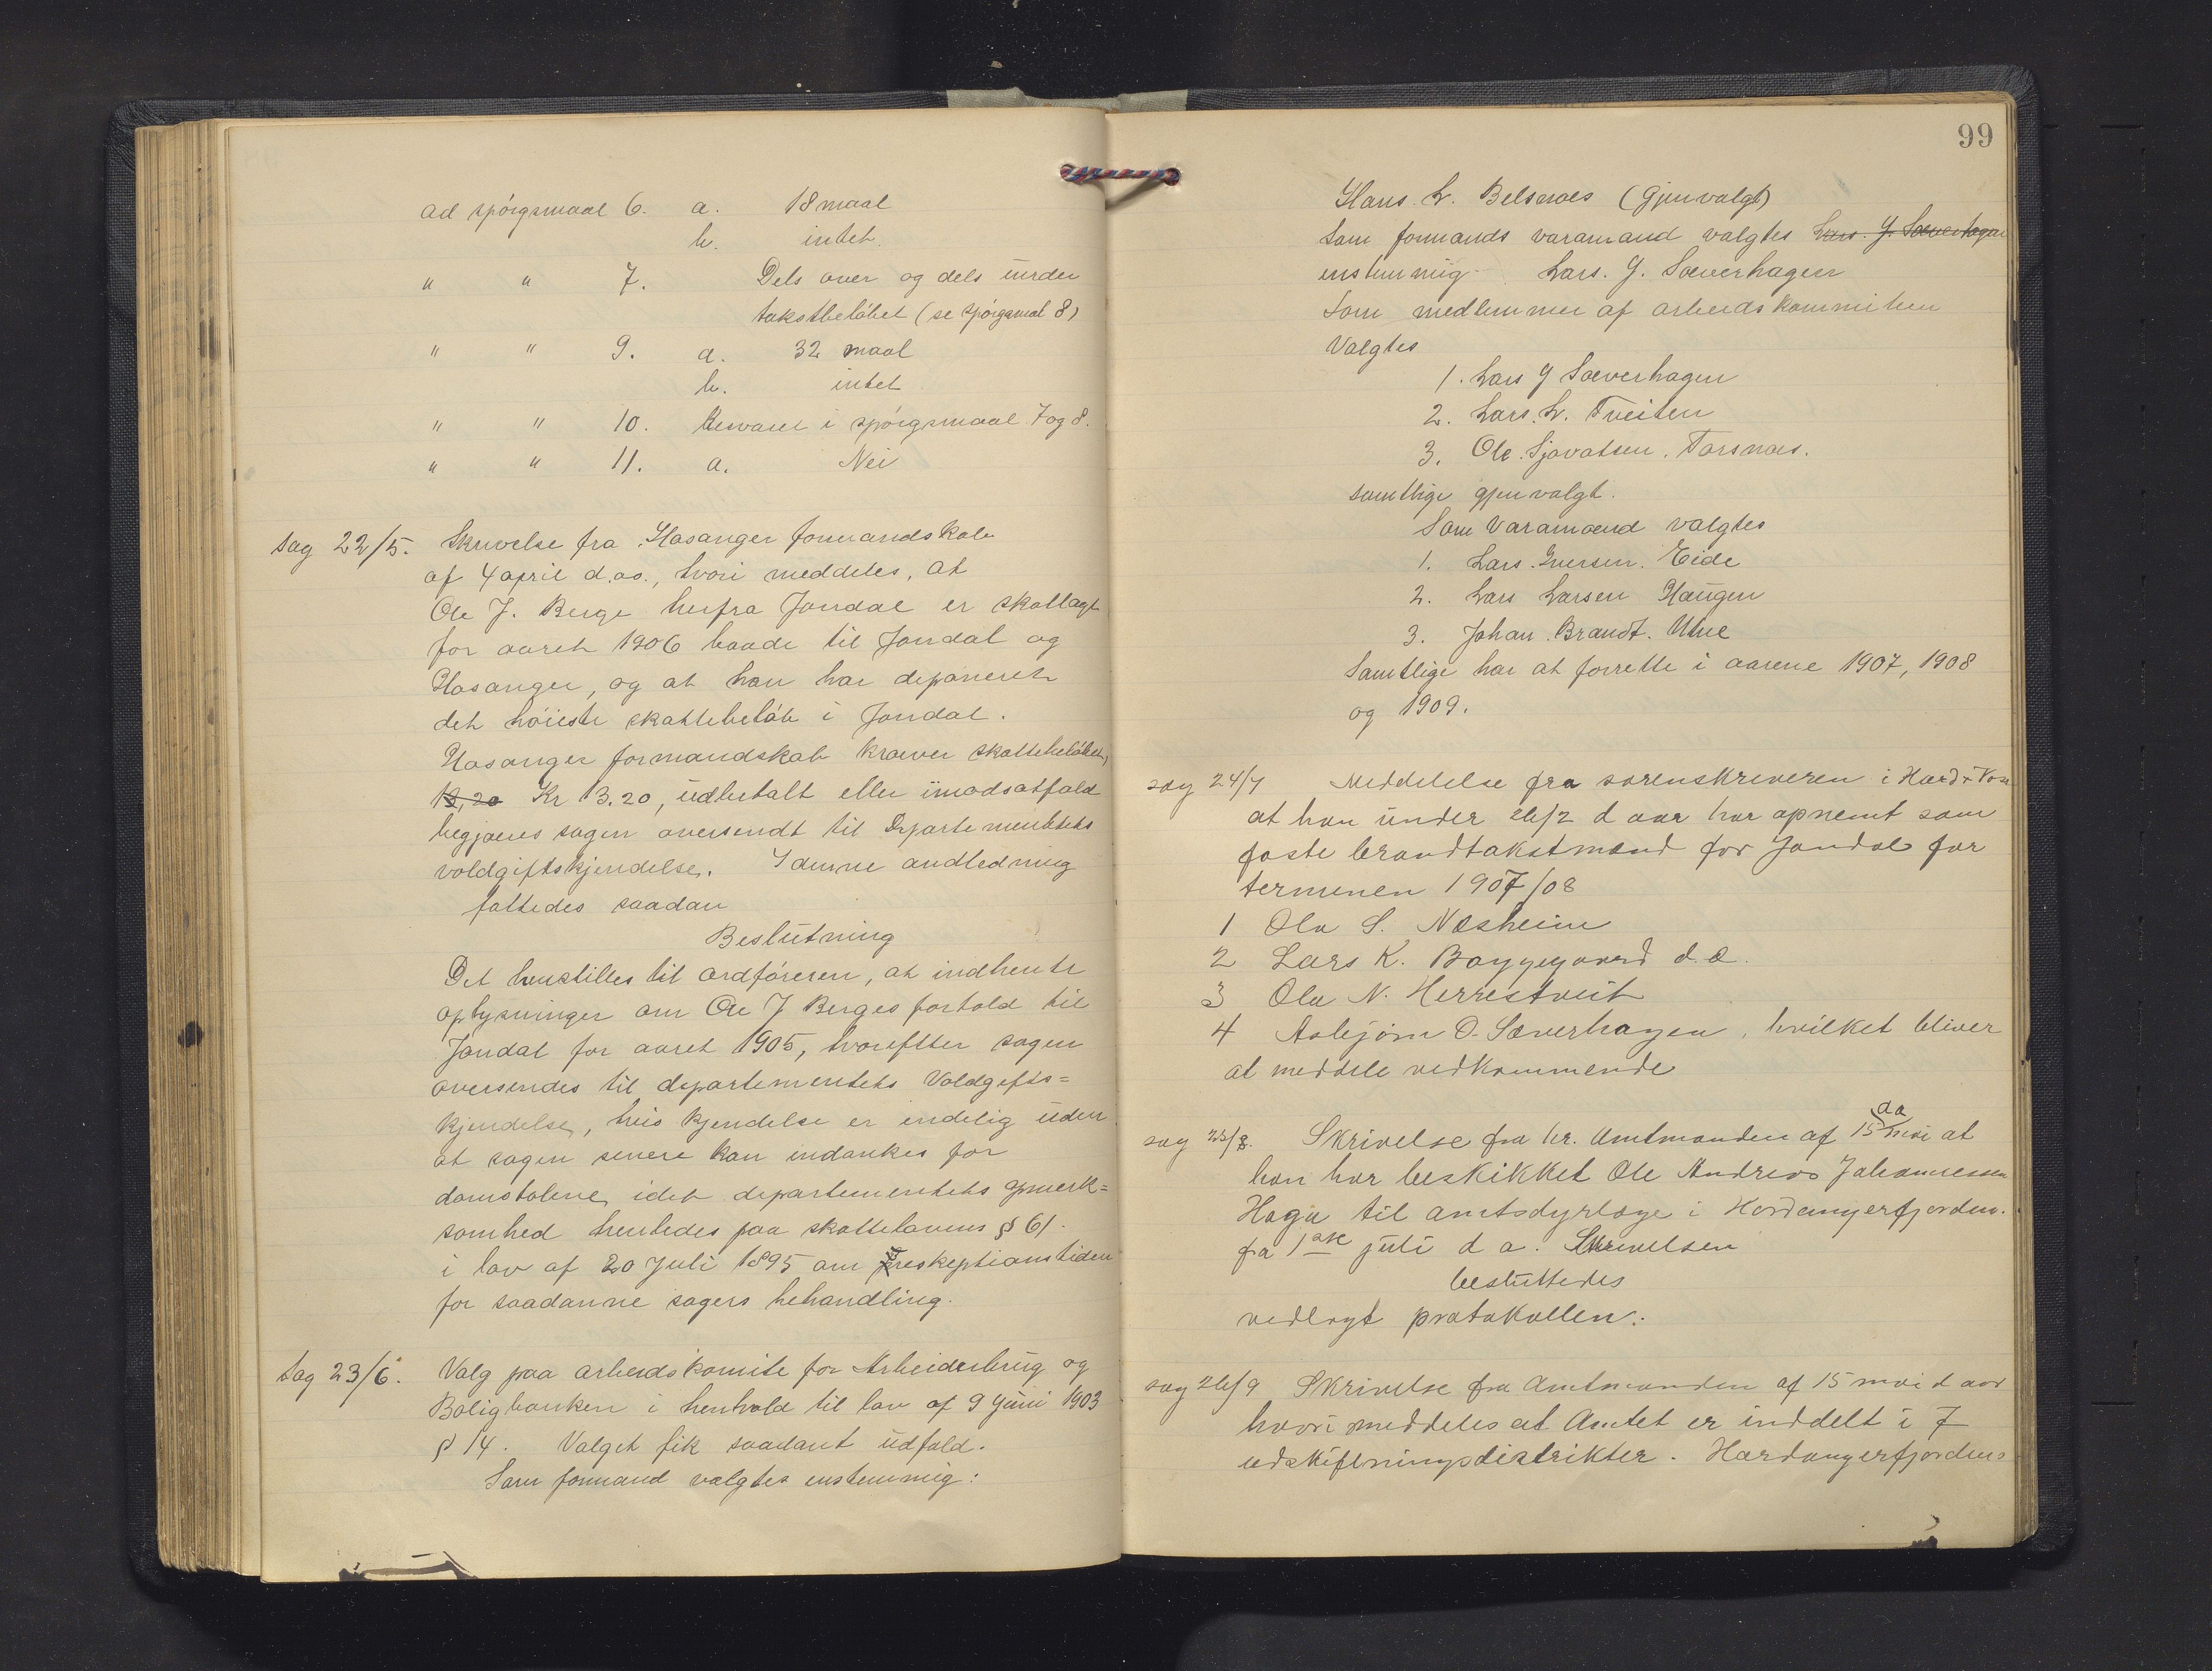 ad spørgsmaal 6. a. 18 maal
b. intet.
" " 7. Dels over og dels under
takstbeløbet (se spørgsmal 8)
" " 9. a. 32 maal
b. intet
" " 10. Besvaret i spørgsmaal 7 og 8.
" " 11. a. Nei
Sag 22/5. Skrivelse fra Kvasanger formandskab
af 4 april d.aa., hvori meddeles, at
Ole J. Berge herfra Jondal er skatlagt
for aaret 1906 baade til Jondal og
og at han har deponeret
det høieste skattebeløb i Jondal.
formandskab kræver skattebeløbet,
13,20 Kr 13.20, udbetalt eller imodsatfald
begjæres sagen oversendt til Departementets
voldgiftskjendelse. I denne andledning
fattedes saadan
Beslutning
Det henstilles til ordføreren, at indhente
oplysninger om Ole J Berges forhold til
Jondal for aaret 1905, hvorefter sagen
oversendes til departementets Voldgifts=
kjendelse, hvis kjendelse er endelig uden
at sagen senere kan indankes for
domstolene, idet departementets opmerk=
somhed henledes paa skattelovens § 61.
i lov af 20 Juli 1895 om Preskeptionstiden
for saadanne sagers behandling.
Sag 23/6. Valg paa arbeidskomite for Arbeiderbrug og
Boligbanken i henhold til lov af 9 Juni 1903
§ 14. Valget fik saadant udfald.
Som formand valgtes enstemmig:
99
Hans L. Belsnæs (Gjenvalgt)
Som formands varamand valgtes Lars J. Sæverhagen
enstemmig Lars. J. Sæverhagen
Som medlemmer af arbeidskommiteen
Valgtes
1. Lars J Sæverhagen
2. Lars. L. Tveiten
3. Ole. Sjovatsen. Torsnæs.
samtlige gjenvalgt.
Som Varamænd valgtes
1. Lars. Iversen. Eide
2. Lars Larsen Haugen
3. Johan. Brandt. Utne
Samtlige har at forrette i aarene 1907, 1908
og 1909.
sag 24/7 Meddelelse fra sorenskriveren i Hard & Vos
at han under 26/2 d aar har opnemt som
faste brandtakstmænd for Jondal for
terminen 1907/08
1 Ola S. Næsheim
2 Lars K. Bryggegaard d.æ.
3 Ola N. Herrestveit
4 Asbjørn O. Sæverhagen, hvilket bliver
at meddele vedkommende
sag 25/8. Skrivelse fra hr. Amtmanden af 15 mai da at
han har beskikket Ole Andreas Johannessen
Haga til amtsdyrlæge i Hardangerfjorden.
fra 1ste juli d a. Skrivelsen
besluttedes
vedlagt protokollen.
sag 26/9 Skrivelse fra Amtmanden af 15 mai d aar
hvori meddeles at Amtet er inddelt i 7
udskiftningsdistrikter. Hardangerfjordens